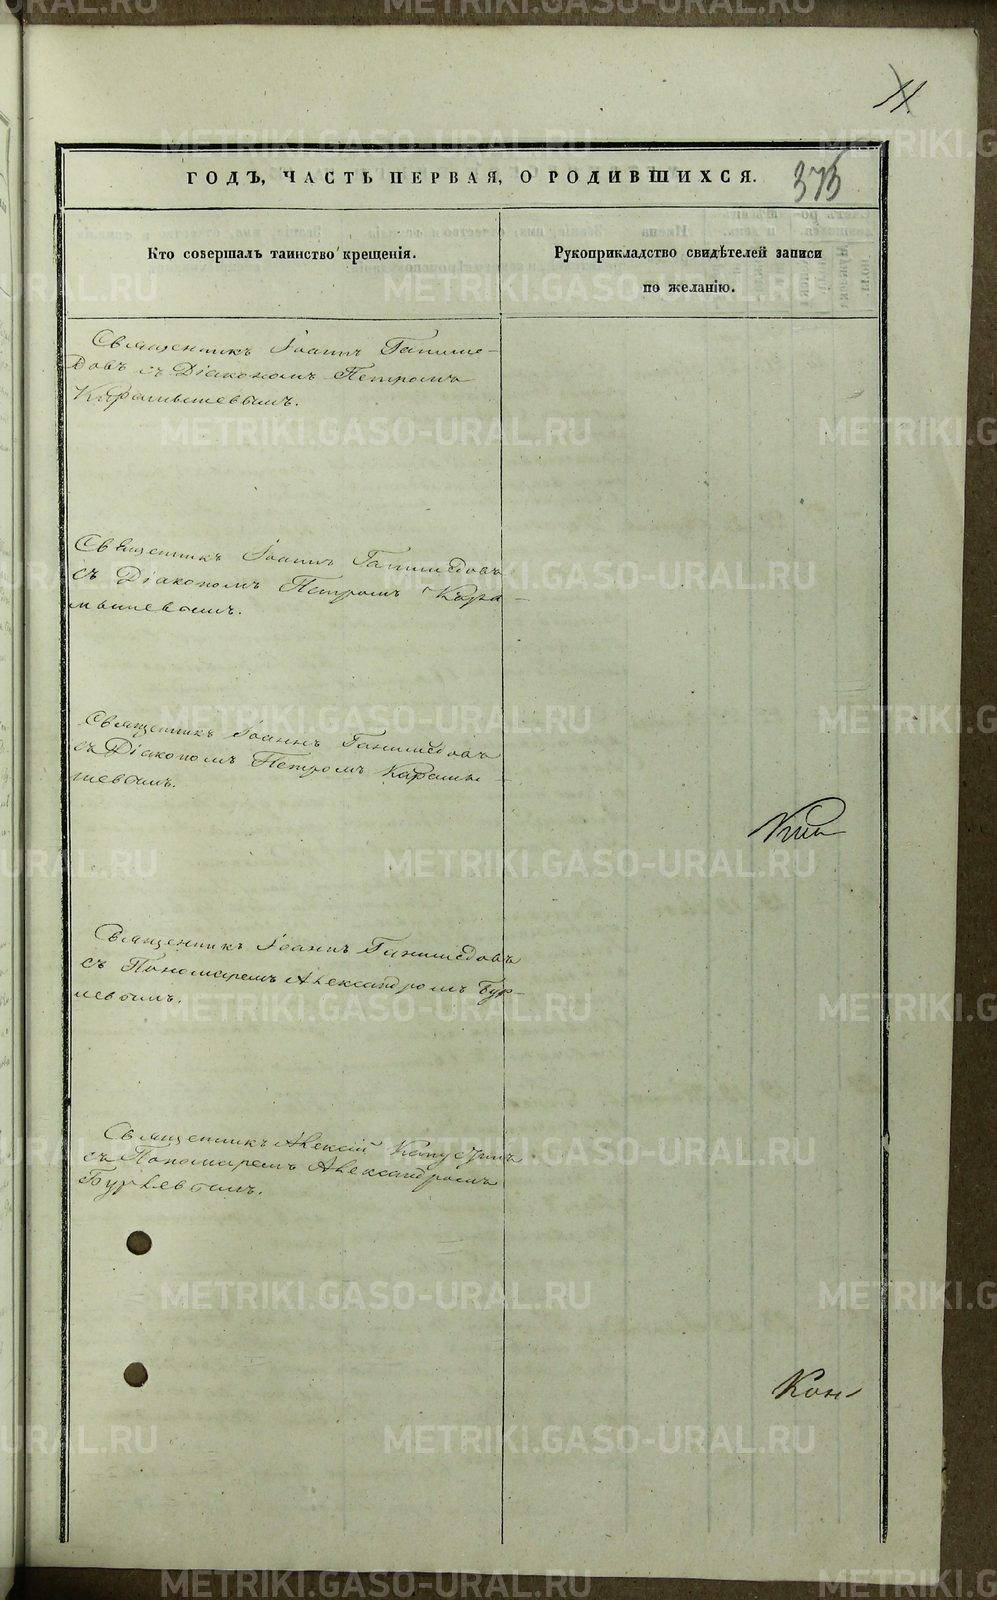 11.
375
ГОДЪ, ЧАСТЬ ПЕРВАЯ, О РОДИВШИХСЯ.
Кто совершалъ таинство крещенія.
Рукоприкладство свидѣтелей записи
по желанію.
Священникъ Іоаннъ
довъ съ Діакономъ Петромъ
Карамышевымъ.
Священникъ Іоаннъ
съ Діакономъ Петромъ Кара-
мышевымъ.
Священникъ Іоаннъ
съ Діакономъ Петромъ Карамы-
шевымъ.
Священникъ Іоаннъ
съ Пономаремъ Александромъ Бур-
левымъ.
Священникъ Алексій Капустинъ
съ Пономаремъ Александромъ
Бурлевымъ.
Кон
METRIKI.GASO-URAL.RU